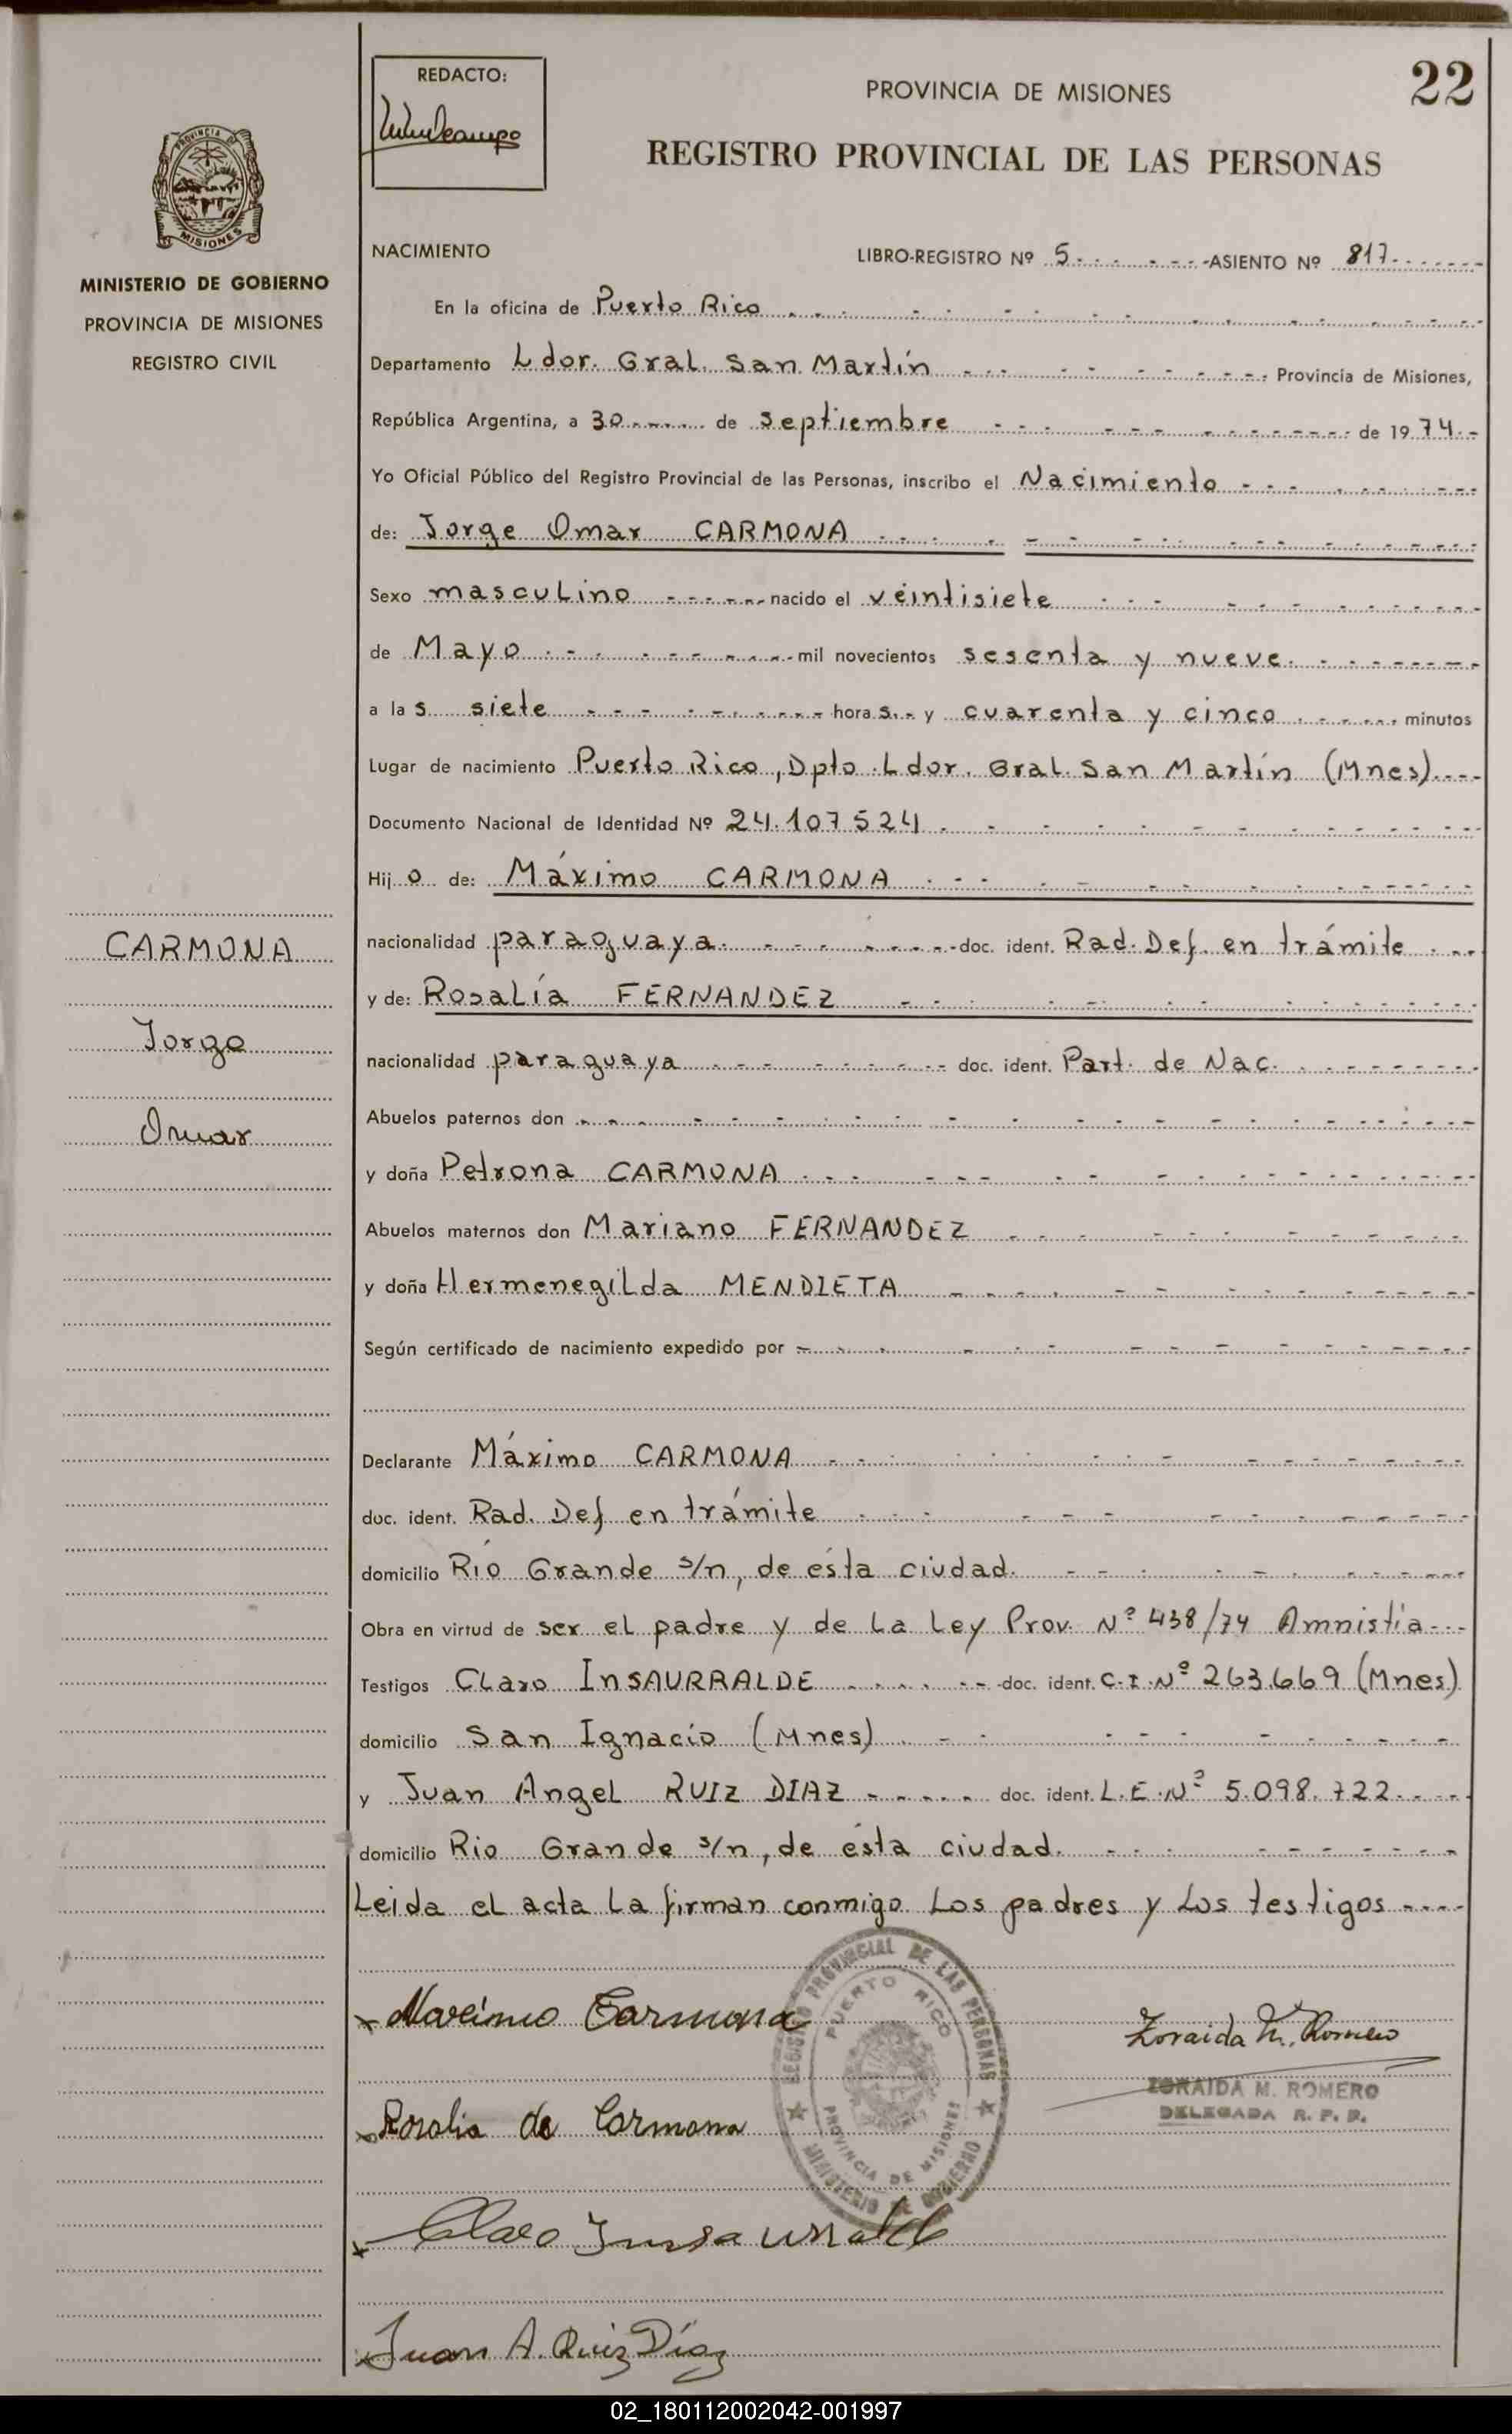 REDACTO:
PROVINCIA DE MISIONES
22
REGISTRO PROVINCIAL DE LAS PERSONAS
PROVINCIA DE
MISIONES
MINISTERIO DE GOBIERNO
PROVINCIA DE MISIONES
REGISTRO CIVIL
NACIMIENTO LIBRO-REGISTRO Nº 5 ASIENTO Nº 817
En la oficina de Puerto Rico
Departamento Ldor. Gral. San Martín Provincia de Misiones,
República Argentina, a 30 de septiembre de 1974
Yo Oficial Público del Registro Provincial de las Personas, inscribo el Nacimiento
de: Jorge Omar CARMONA
Sexo masculino nacido el veintisiete
de Mayo mil novecientos sesenta y nueve
a las siete horas y cuarenta y cinco minutos
Lugar de nacimiento Puerto Rico, Dpto. Ldor. Gral. San Martín (Mnes)
Documento Nacional de Identidad Nº 24.107.524
Hijo de: Máximo CARMONA
nacionalidad paraguaya doc. ident. Rad. Def. en trámite
y de: Rosalía FERNANDEZ
nacionalidad paraguaya doc. ident. Part. de Nac.
Abuelos paternos don
y doña Petrona CARMONA
Abuelos maternos don Mariano FERNANDEZ
y doña Hermenegilda MENDIETA
Según certificado de nacimiento expedido por
Declarante Máximo CARMONA
doc. ident. Rad. Def en trámite
domicilio Río Grande s/n, de ésta ciudad.
Obra en virtud de ser el padre y de la Ley Prov. Nº 438/74 Amnistía
Testigos Claro INSAURRALDE doc. ident. C.I.Nº 263.669 (Mnes)
domicilio San Ignacio (Mnes)
y Juan Angel RUIZ DIAZ doc. ident. L.E.Nº 5.098.722
domicilio Rio Grande s/n, de ésta ciudad.
Leida el acta la firman conmigo los padres y los testigos
CARMONA
Jorge
Omar
Maximo Carmona
Zoraida M. Romero
ZORAIDA M. ROMERO
DELEGADA R. P. P.
REGISTRO PROVINCIAL DE LAS PERSONAS
PUERTO RICO
PROVINCIA DE MISIONES
MINISTERIO DE GOBIERNO
Rosalia de Carmona
Claro Insaurralde
Juan A. Ruiz Díaz
02_180112002042-001997